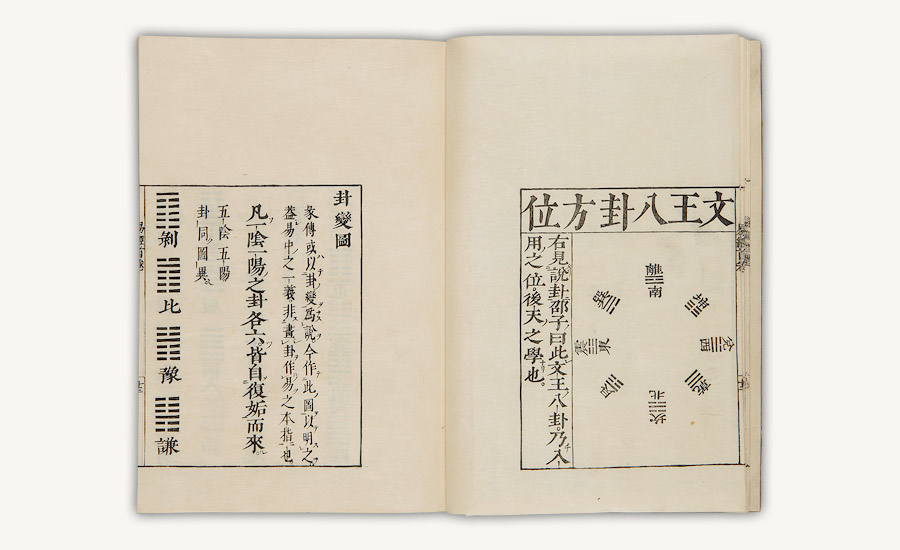 文王八卦方位
離
南
坤
兌西
乾
北
坎
艮
震東
巽
右見說卦邵子曰此文王八卦乃入
用之位。後天之學也。
卦變圖
彖傳或以卦變爲說今作此圖以明之
葢易中之一義非畫卦作易之本指也
凡一陰一陽之卦各六皆自復姤而來
五陰五陽
卦同圖異
剝
比
豫
謙